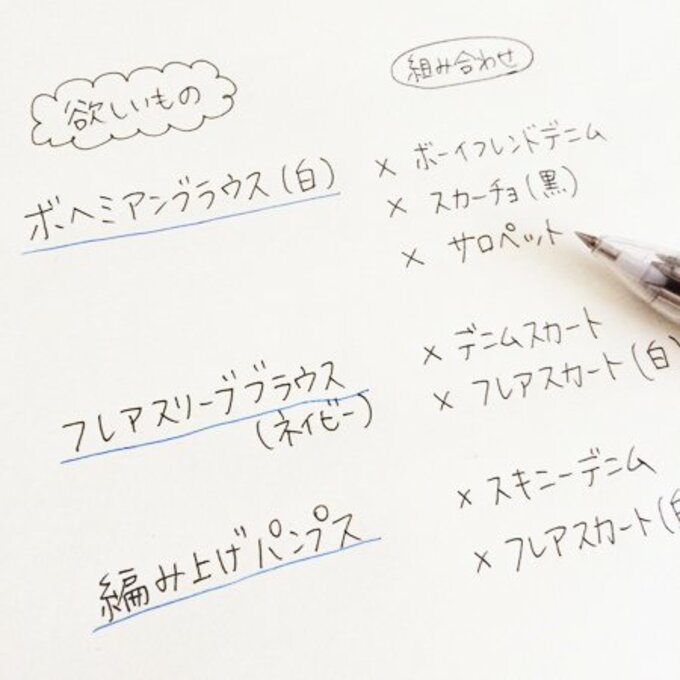 欲しいもの
組み合わせ
ボヘミアンブラウス(白)
× ボーイフレンドデニム
× スカーチョ(黒)
× サロペット
フレアスリーブブラウス
(ネイビー)
× デニムスカート
× フレアスカート(白)
編み上げパンプス
× スキニーデニム
× フレアスカート(白